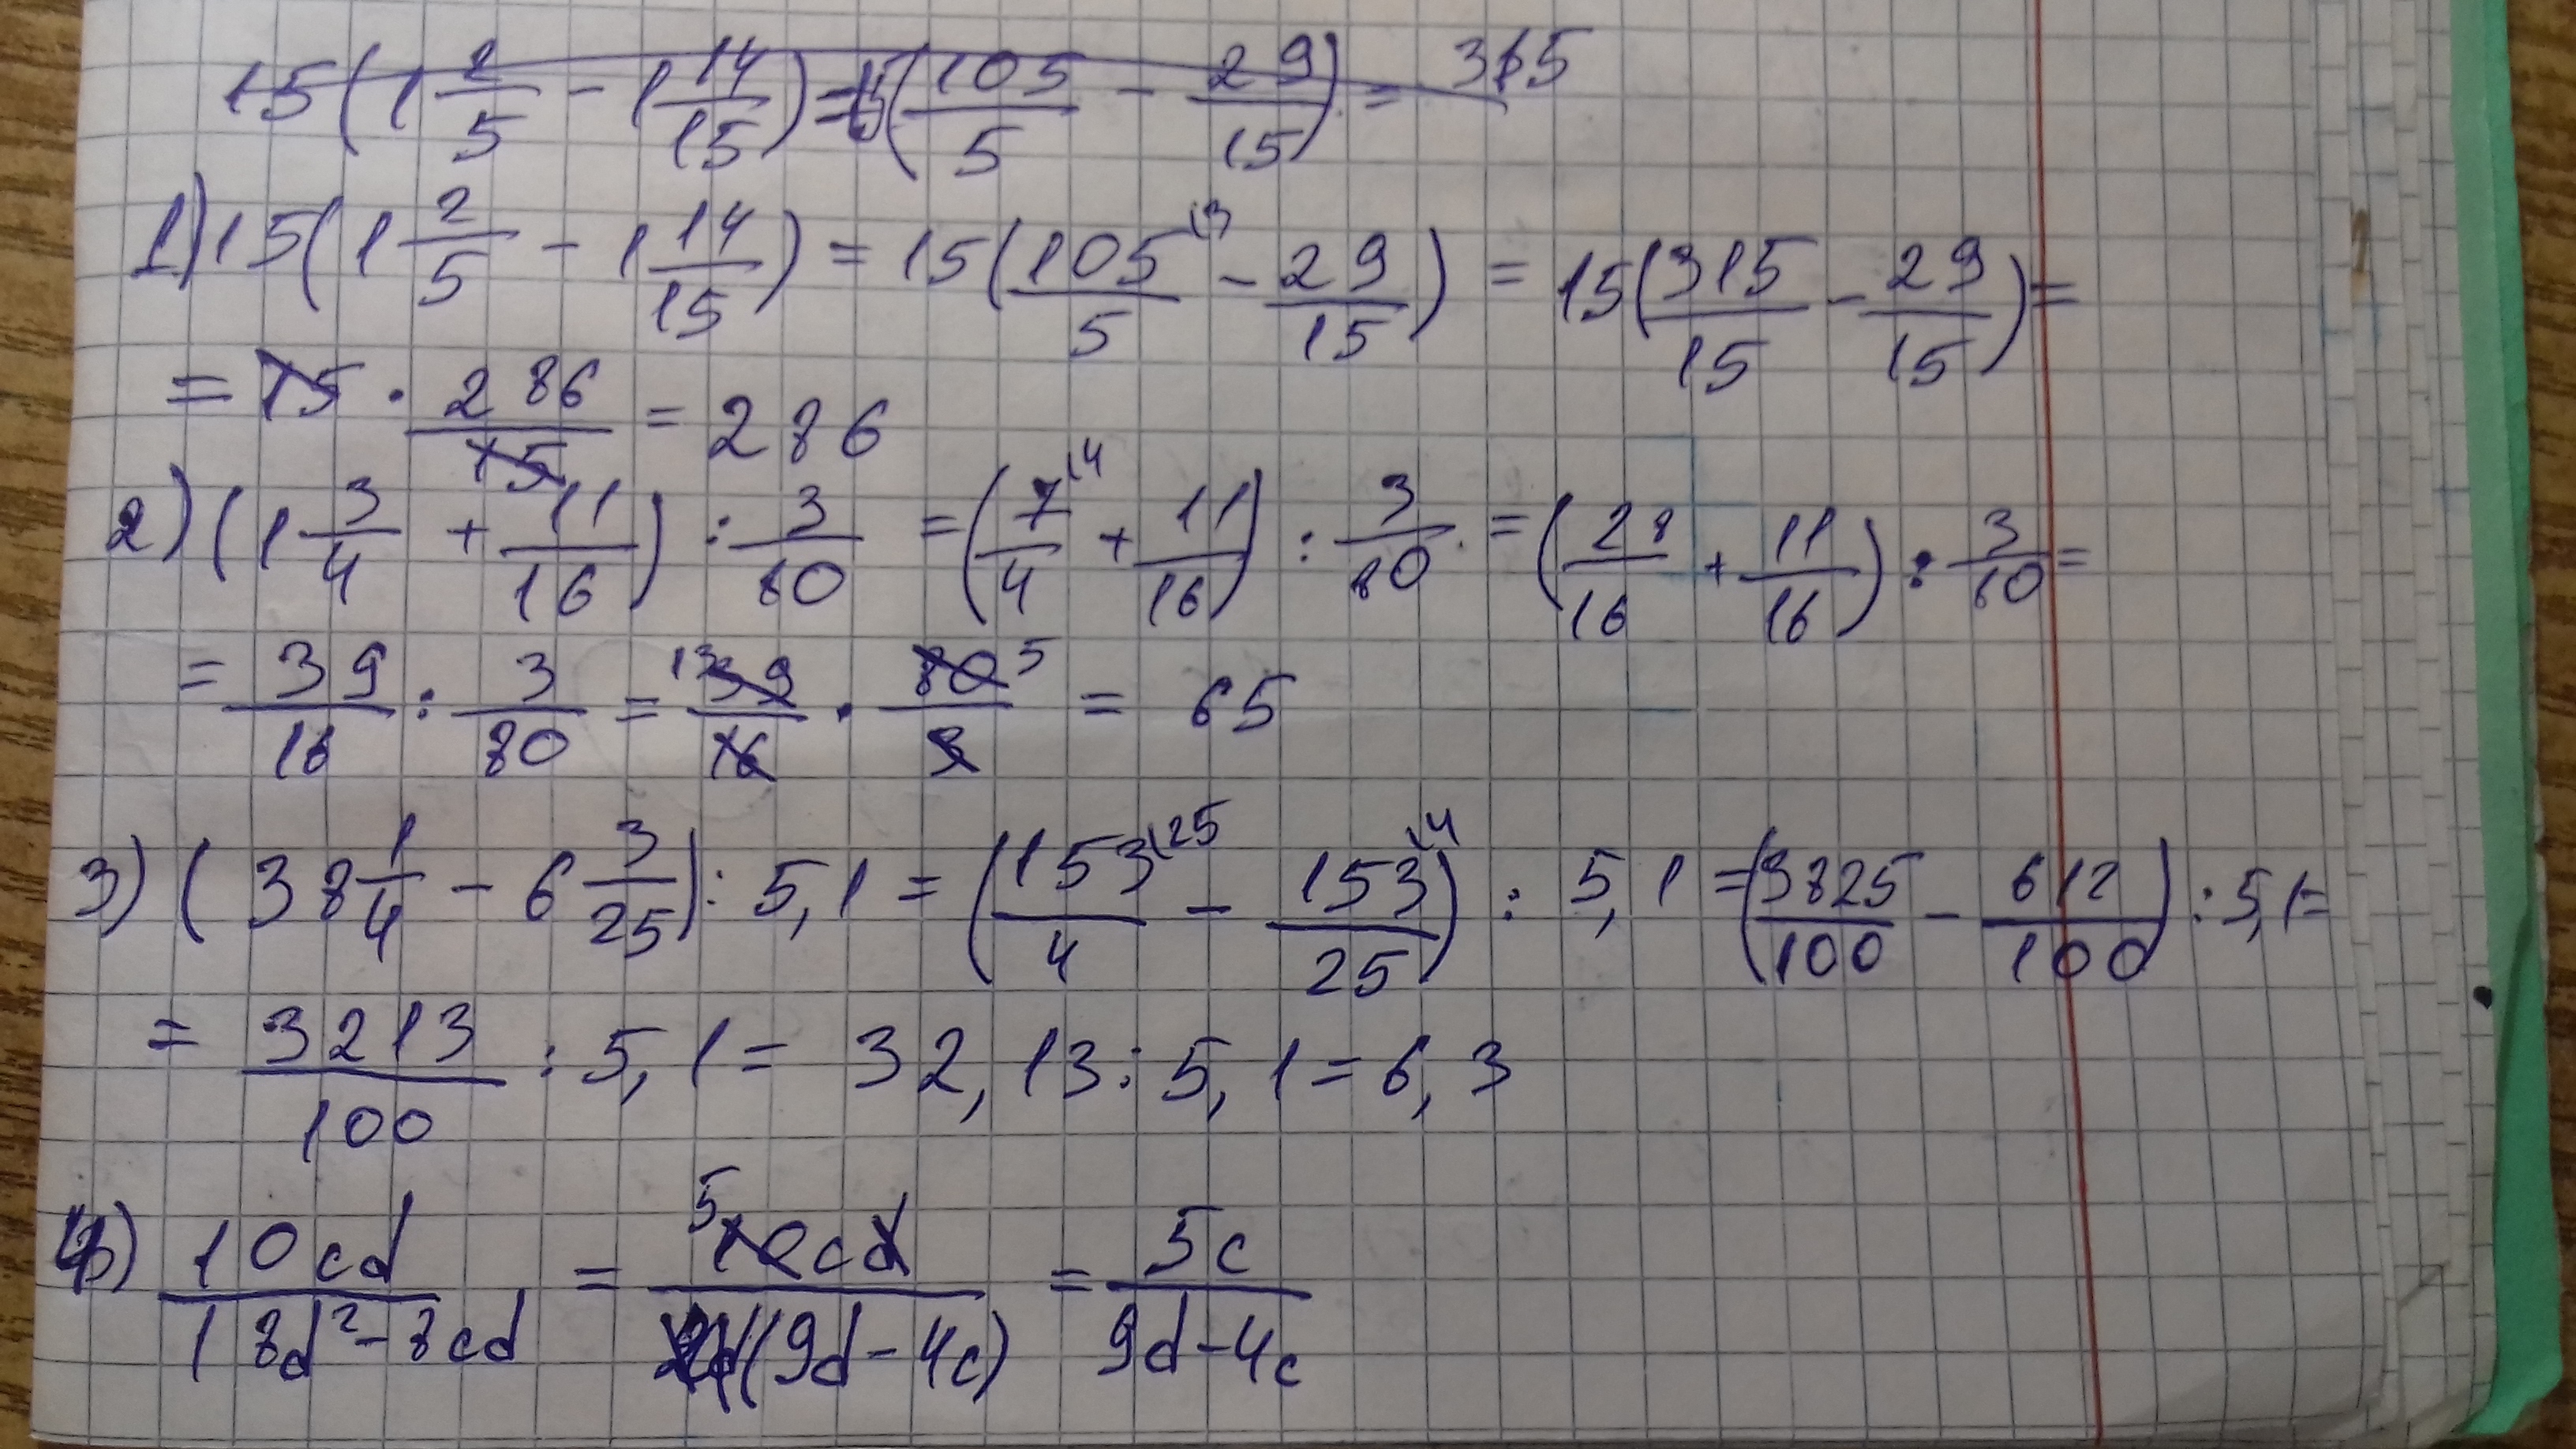 15(1 2/5 - 1 14/15) = 15(105/5 - 29/15) = 315
1) 15(1 2/5 - 1 14/15) = 15(105\3/5 - 29/15) = 15(315/15 - 29/15) =
= 15 · 286/15 = 286
2) (1 3/4 + 11/16) : 3/80 = (7\4/4 + 11/16) : 3/80 = (28/16 + 11/16) : 3/80 =
= 39/16 : 3/80 = 13 39/16 · 80/3 5 = 65
3) (38 1/4 - 6 3/25) : 5,1 = (153\25/4 - 153\4/25) : 5,1 = (3825/100 - 612/100) : 5,1 =
= 3213/100 : 5,1 = 32,13 : 5,1 = 6,3
4) 10cd/18d² - 8cd = 5 10cd/2d(9d - 4c) = 5c/9d - 4c